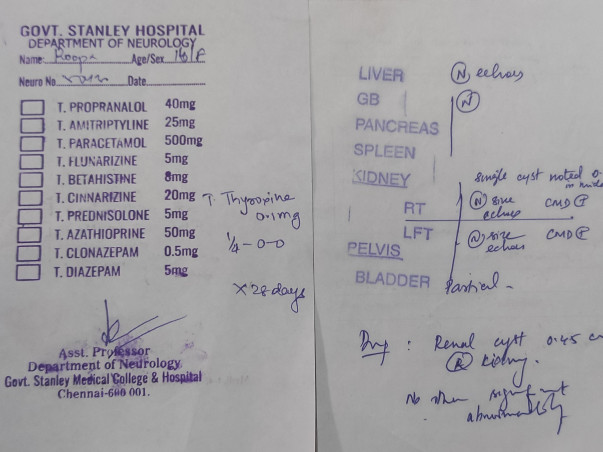 GOVT. STANLEY HOSPITAL
DEPARTMENT OF NEUROLOGY
Name Roopa Age/Sex 16/F
Neuro No Date
T. PROPRANALOL 40mg
T. AMITRIPTYLINE 25mg
T. PARACETAMOL 500mg
T. FLUNARIZINE 5mg
T. BETAHISTINE 8mg
T. CINNARIZINE 20mg
T. PREDNISOLONE 5mg
T. AZATHIOPRINE 50mg
T. CLONAZEPAM 0.5mg
T. DIAZEPAM 5mg
T. Thyroxine
0.1mg
1/4-0-0
X 28 days
Asst. Professor
Department of Neurology
Govt. Stanley Medical College & Hospital
Chennai-600 001.
LIVER N echoes
GB N
PANCREAS
SPLEEN
KIDNEY single cyst noted
RT N size echoes CMD P
LFT N size echoes CMD P
PELVIS
BLADDER Partial -
Imp : Renal cyst 0.45
R kidney.
No other significant
abnormality